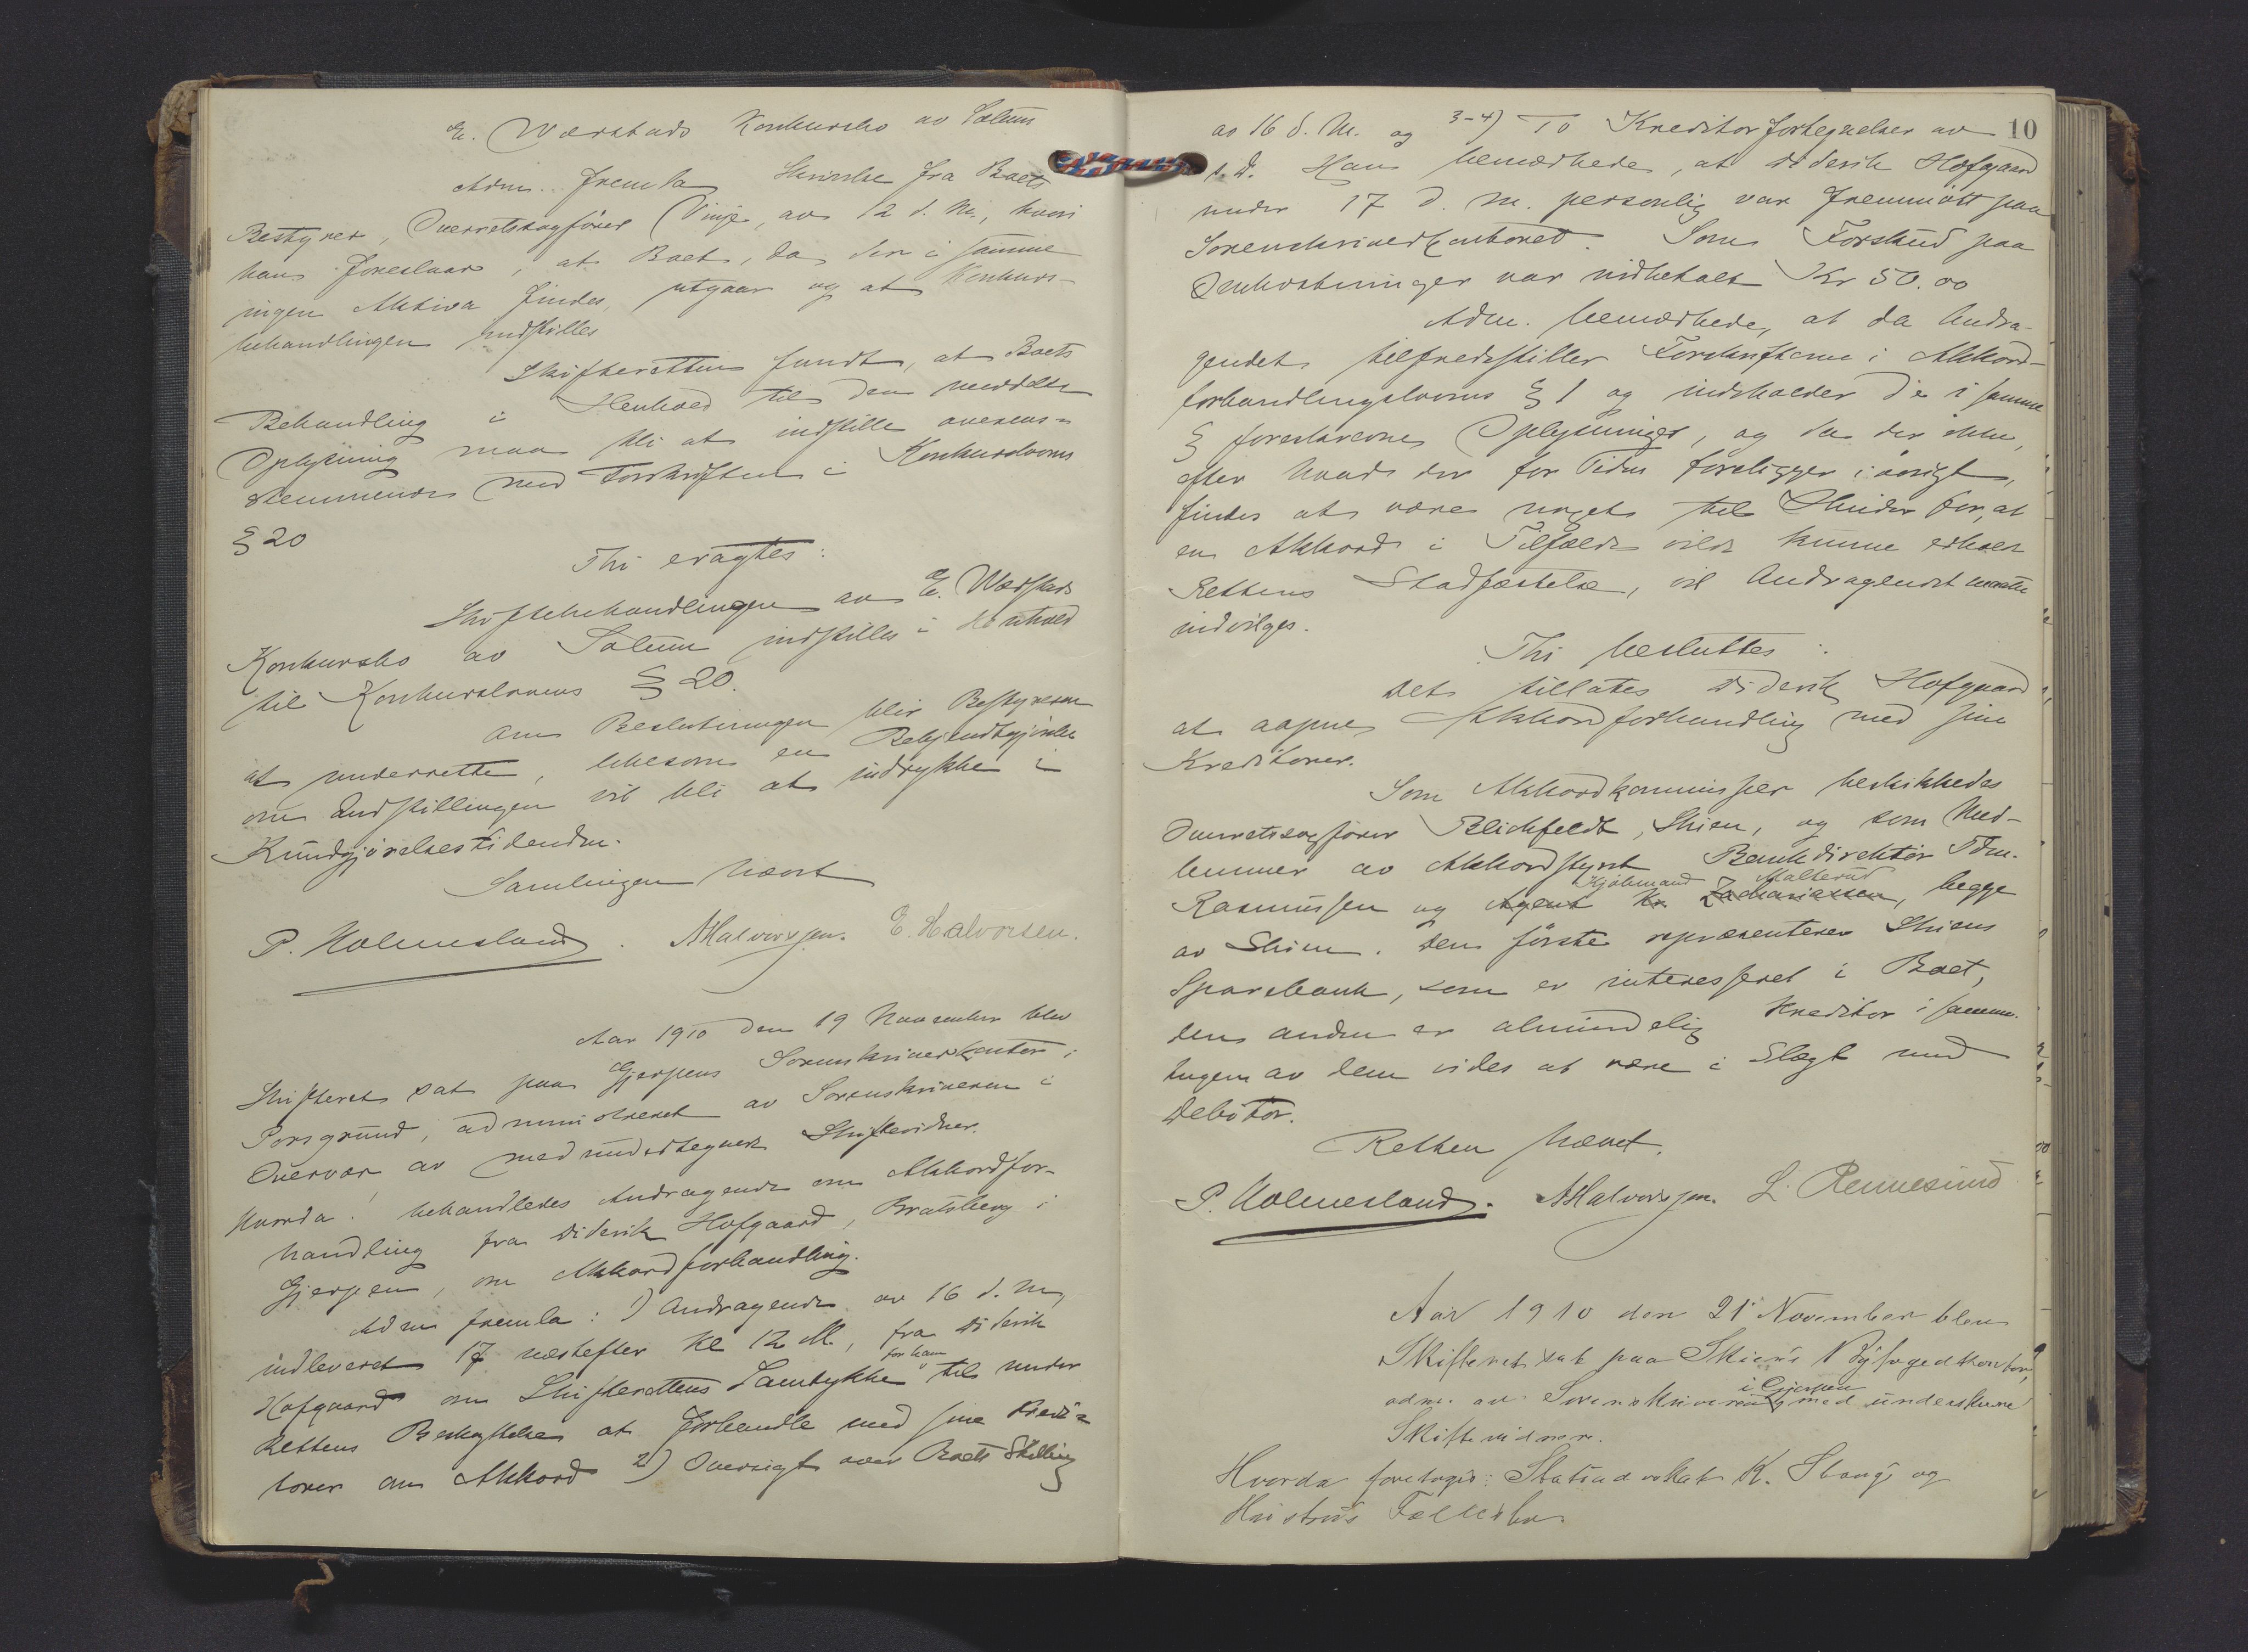 E. Værstads Konkursbo av Solum
Adm. fremla Skrivelse fra Boets
Bestyrer, Overretssagfører Vinje, av 12 d. M., hvori
han foreslaar, at Boet, da der i samme
ingen Aktiva findes, utgaar og at Konkurs-
behandlingen indstilles
Skifteretten fandt, at Boets
Behandling i Henhold til den meddelte
Oplysning maa bli at indstille overens-
stemmende med Forskriften i Konkurslovens
§ 20
Thi eragtes:
Skiftebehandlingen av E. Værstads
Konkursbo av Solum indstilles i Henhold
til Konkurslovens § 20.
Om Beslutningen blir Bestyreren
at underrette, likesom en Bekjendtgjørelse
om Indstillingen vil bli at indrykke i
Kundgjørelsestidenden.
Samlingen hævet
P. Holmesland. AHalvorsen. E. Halvorsen.
Aar 1910 den 19 November blev
Skifteret sat paa Gjerpens Sorenskriverkontor i
Porsgrund, administreret av Sorenskriveren i
Overvær av medundertegnede Skiftevidner.
Hvorda: behandledes Andragende om Akkordfor-
handling fra Diderik Hofgaard, Bratsberg i
Gjerpen, om Akkordforhandling.
Adm fremla: 1) Andragende av 16 d. M.,
indleveret 17 næstefter Kl 12 M., fra Diderik
Hofgaard om Skifterettens Samtykke for ham til under
Rettens Beskyttelse at forhandle med sine Kredi-
torer om Akkord 2) Oversigt over Boets Stilling
10
av 16 d. M. og 3-4) To Kreditorfortegnelser av
s. D. Han bemærkede, at Diderik Hofgaard
under 17 d. M. personlig var fremmøtt paa
Sorenskriverkontoret. Som Forskud paa
Omkostninger var indbetalt Kr 50.00
Adm. bemærkede, at da Andra-
gendet tilfredsstiller Forskrifterne i Akkord-
forhandlingslovens § 1 og indeholder de i samme
§ foreskrevne Oplysninger, og da der ikke,
efter hvad der for Tiden foreligger i øvrigt,
findes at være noget til Hinder for, at
en Akkord i Tilfælde vilde kunne erholde
Rettens Stadfæstelse, vil Andragendet maatte
indvilges.
Thi besluttes:
Det tillates Diderik Hofgaard
at aapne Akkordforhandling med sine
Kreditorer.
Som Akkordkommissær beskikkedes
Overretssagfører Blichfeldt, Skien, og som Med-
lemmer av Akkordstyret Bankdirektør Thm.
Rasmussen og Agent Kr. Zachariassen Kjøbmand Malterud, begge
av Skien. Den første repræsenterer Skiens
Sparebank, som er interesseret i Boet,
den anden er almindelig Kreditor i samme.
Ingen av dem vides at være i Slægt med
Debitor.
Retten hævet.
P. Holmesland. AHalvorsen. L. Rennesund
Aar 1910 den 21 November blev
Skifteret sat paa Skiens Byfogedkontor,
adm. av Sorenskriveren i Gjerpen med underskrevne
Skiftevidner.
Hvorda foretoges: Statsadvokat K. Stang og
Hustrus Fællesbo